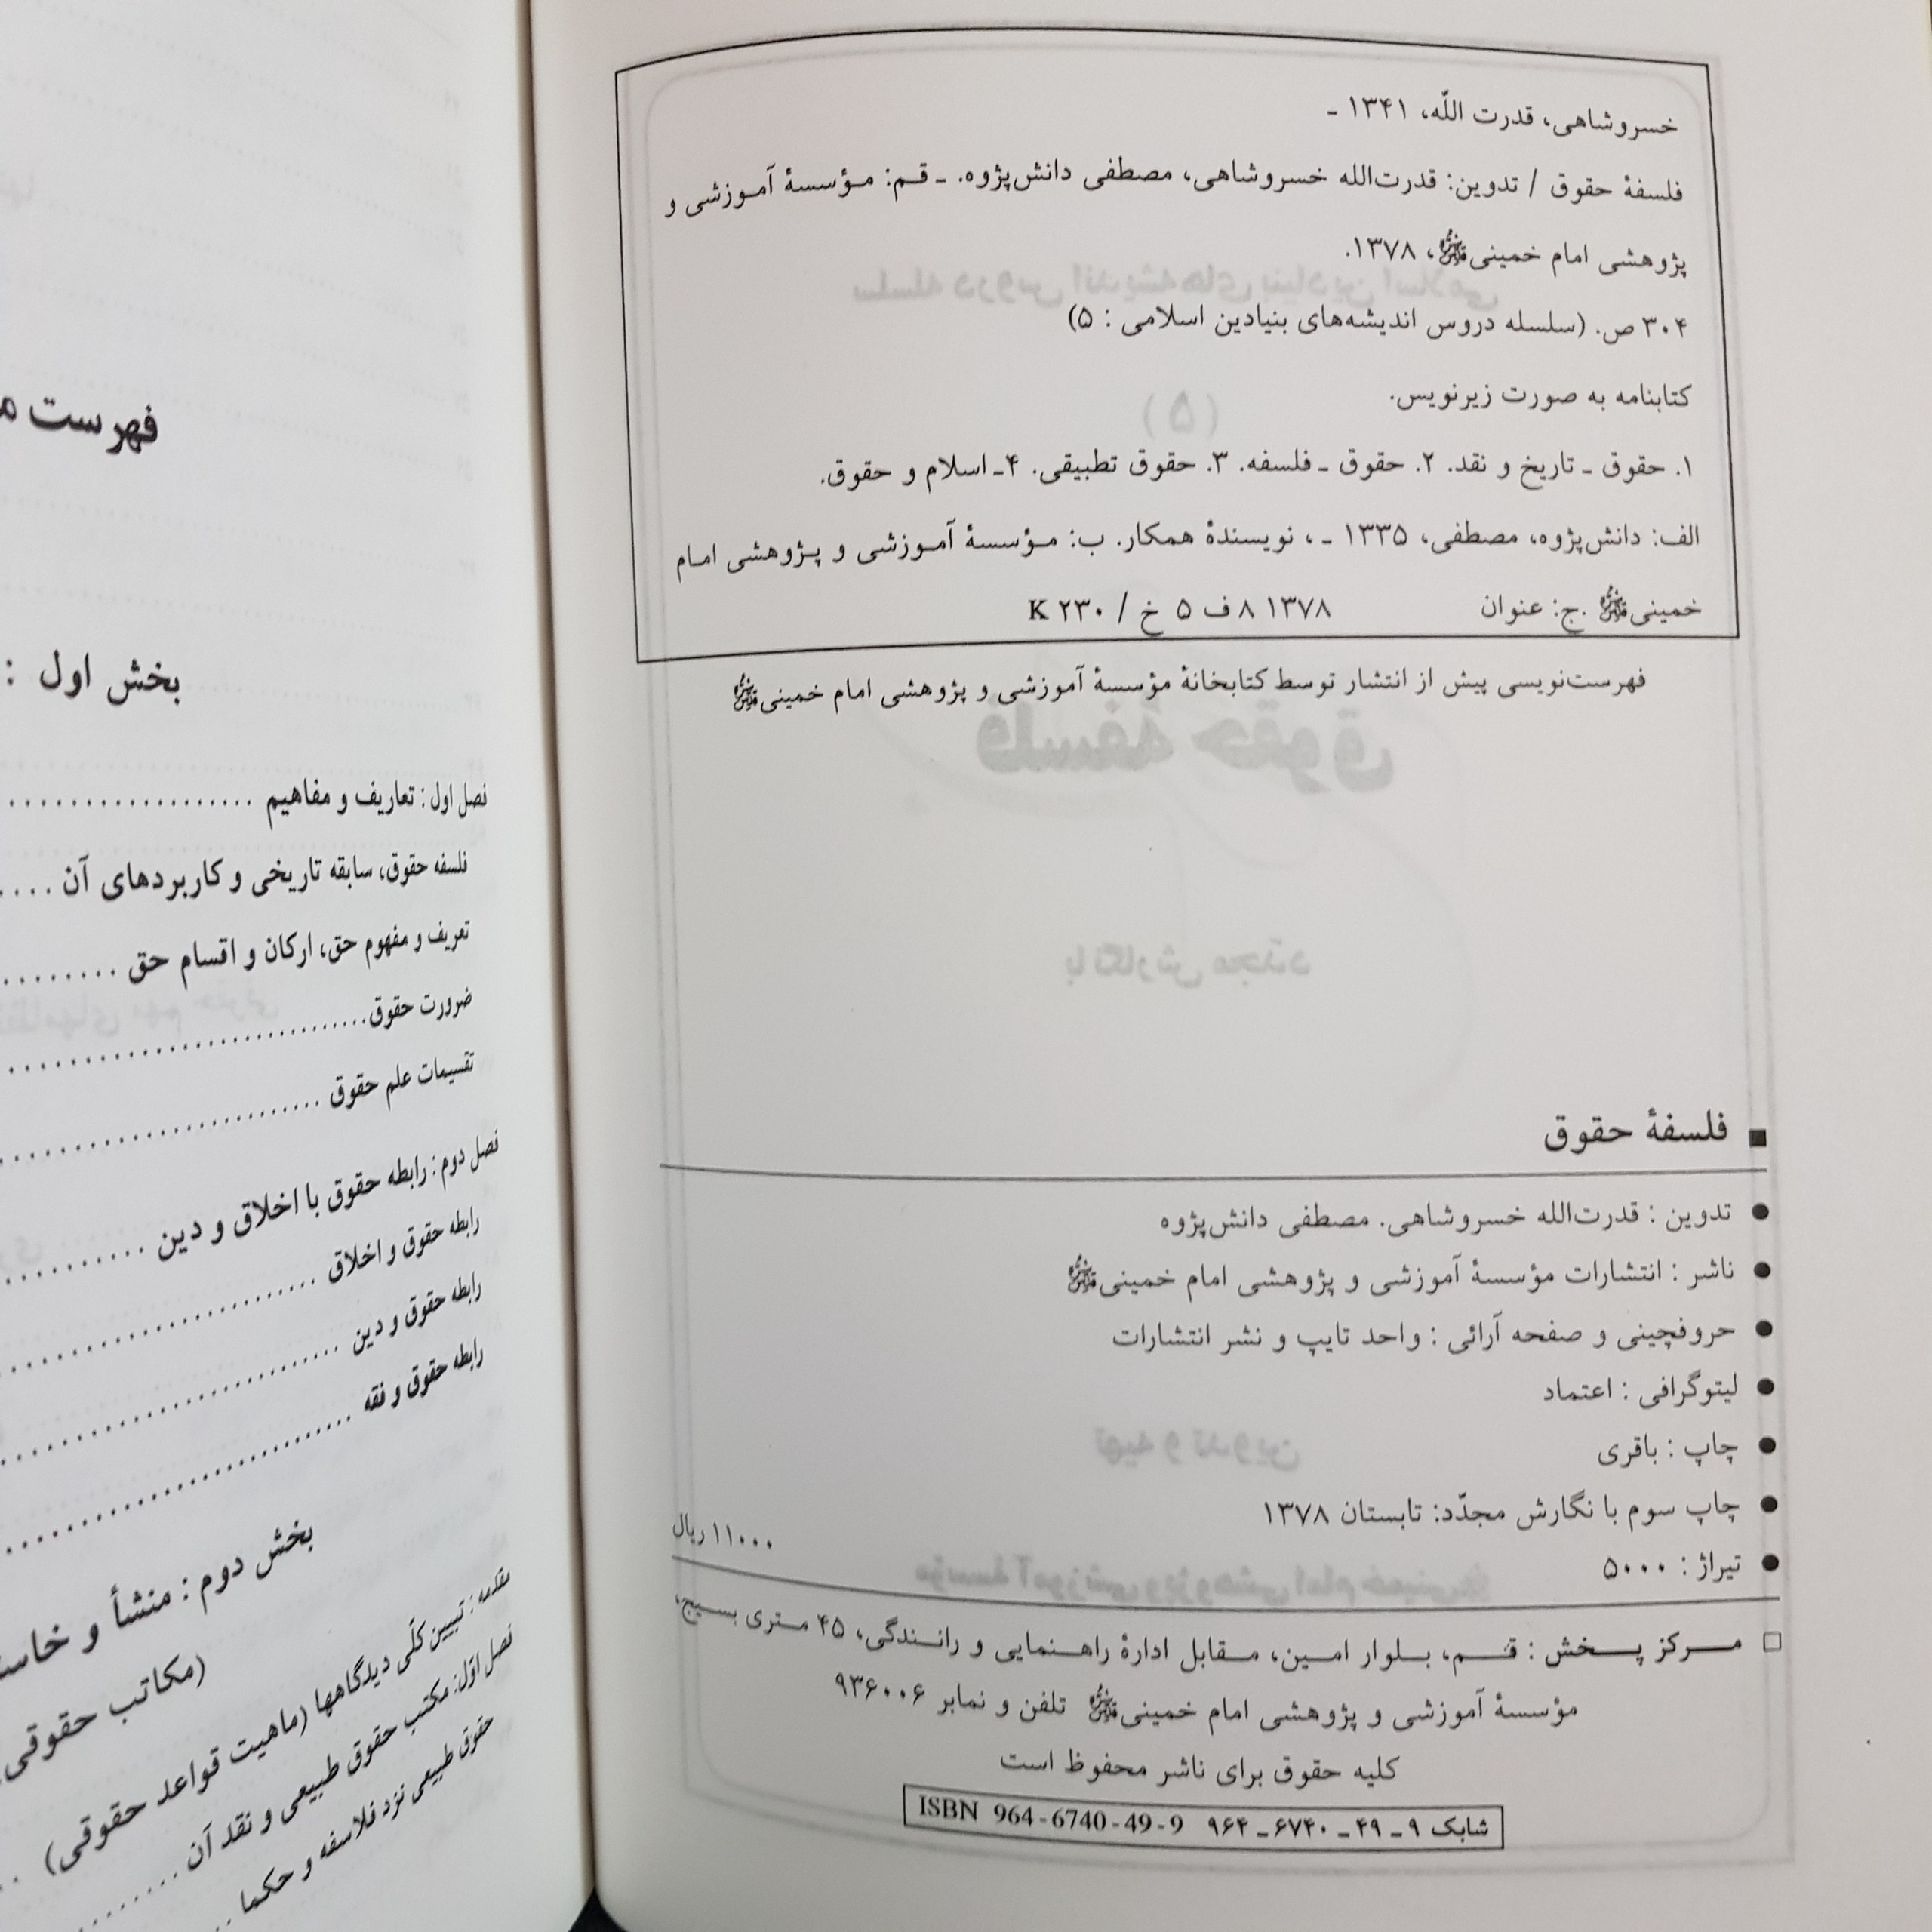 خسروشاهی، قدرت اللّه، ۱۳۴۱ ـ
فلسفهٔ حقوق / تدوین: قدرت‌الله خسروشاهی، مصطفی دانش‌پژوه. ـ قم: مؤسسهٔ آموزشی و
پژوهشی امام خمینی، ۱۳۷۸.
۳۰۴ ص. (سلسله دروس اندیشه‌های بنیادین اسلامی : ۵)
کتابنامه به صورت زیرنویس.
۱. حقوق ـ تاریخ و نقد. ۲. حقوق ـ فلسفه. ۳. حقوق تطبیقی. ۴ـ اسلام و حقوق.
الف: دانش‌پژوه، مصطفی، ۱۳۳۵ ـ ، نویسندهٔ همکار. ب: مؤسسهٔ آموزشی و پژوهشی امام
خمینی .ج: عنوان ۱۳۷۸ ۸ ف ۵ خ / ۲۳۰ K
فهرست‌نویسی پیش از انتشار توسط کتابخانهٔ مؤسسهٔ آموزشی و پژوهشی امام خمینی
فلسفهٔ حقوق
تدوین : قدرت‌الله خسروشاهی. مصطفی دانش‌پژوه
ناشر : انتشارات مؤسسهٔ آموزشی و پژوهشی امام خمینی
حروفچینی و صفحه آرائی : واحد تایپ و نشر انتشارات
لیتوگرافی : اعتماد
چاپ : باقری
چاپ سوم با نگارش مجدّد: تابستان ۱۳۷۸
تیراژ : ۵۰۰۰
۱۱۰۰۰ ریال
مرکز پخش : قم، بلوار امین، مقابل ادارهٔ راهنمایی و رانندگی، ۴۵ متری بسیج،
مؤسسهٔ آموزشی و پژوهشی امام خمینی تلفن و نمابر ۹۳۶۰۰۶
کلیه حقوق برای ناشر محفوظ است
شابک ۹ ـ ۴۹ ـ ۶۷۴۰ ـ ۹۶۴ ISBN 964-6740-49-9
فهرست
بخش اول :
فصل اول : تعاریف و مفاهیم
فلسفه حقوق، سابقه تاریخی و کاربردهای آن
تعریف و مفهوم حق، ارکان و اقسام حق
ضرورت حقوق
تقسیمات علم حقوق
فصل دوم : رابطه حقوق با اخلاق و دین
رابطه حقوق و اخلاق
رابطه حقوق و دین
رابطه حقوق و فقه
بخش دوم : منشأ و
(مکاتب حقوقی
مقدمه : تبیین کلّی دیدگاهها (ماهیت قواعد حقوقی)
فصل اوّل: مکتب حقوق طبیعی و نقد آن
حقوق طبیعی نزد فلاسفه و حکما